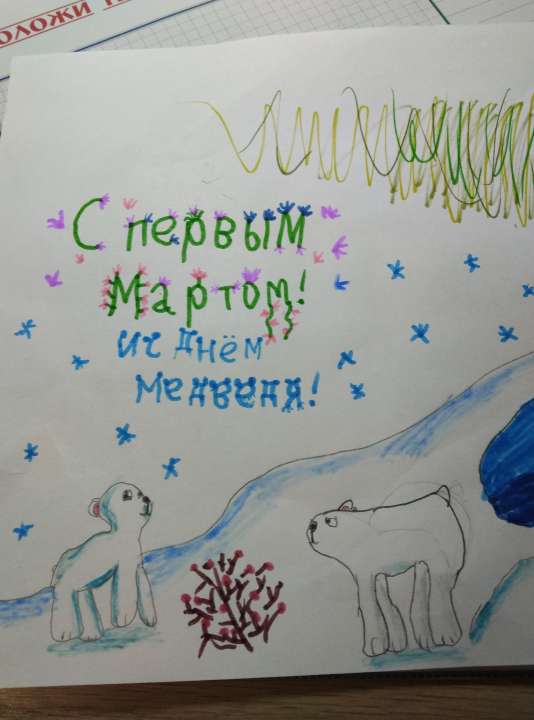 ОЛОЖИ
С первым
Мартом!
и с днём
медведя!